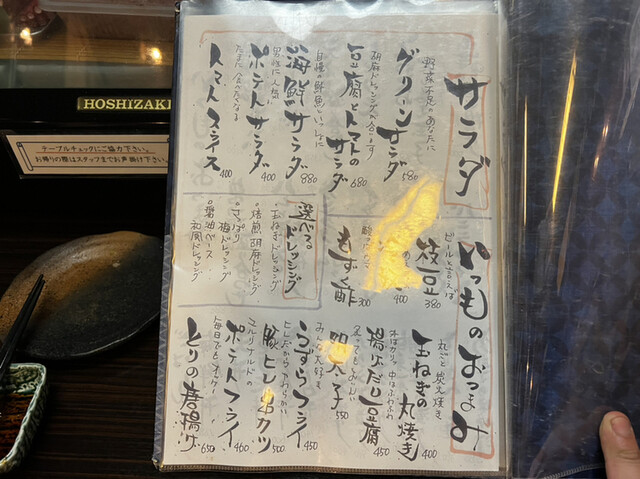 HOSHIZAKI
テーブルチェックにご協力下さい。
お帰りの際はスタッフまでお声掛け下さい。
サラダ
野菜不足のあなたに
グリーンサラダ 580
胡麻ドレッシングが合います
豆腐とトマトのサラダ 680
自慢の鮮魚といっしょに
海鮮サラダ 880
男性に人気
ポテトサラダ 400
たまに食べたくなる
トマトスライス 400
選べる。ドレッシング
○玉ねぎドレッシング
○焙煎胡麻ドレッシング
○さっぱり梅ドレッシング
○醤油ベース和風ドレッシング
いつものおつまみ
ビールと言えば
枝豆 380
400
もず酢 300
丸ごと炭火焼き
玉ねぎの丸焼き 400
揚げだし豆腐 450
明太子 550
うずらフライ 450
豚ヒレ串カツ 500
ポテトフライ 460
毎日でもオッケー
とりの唐揚げ 650